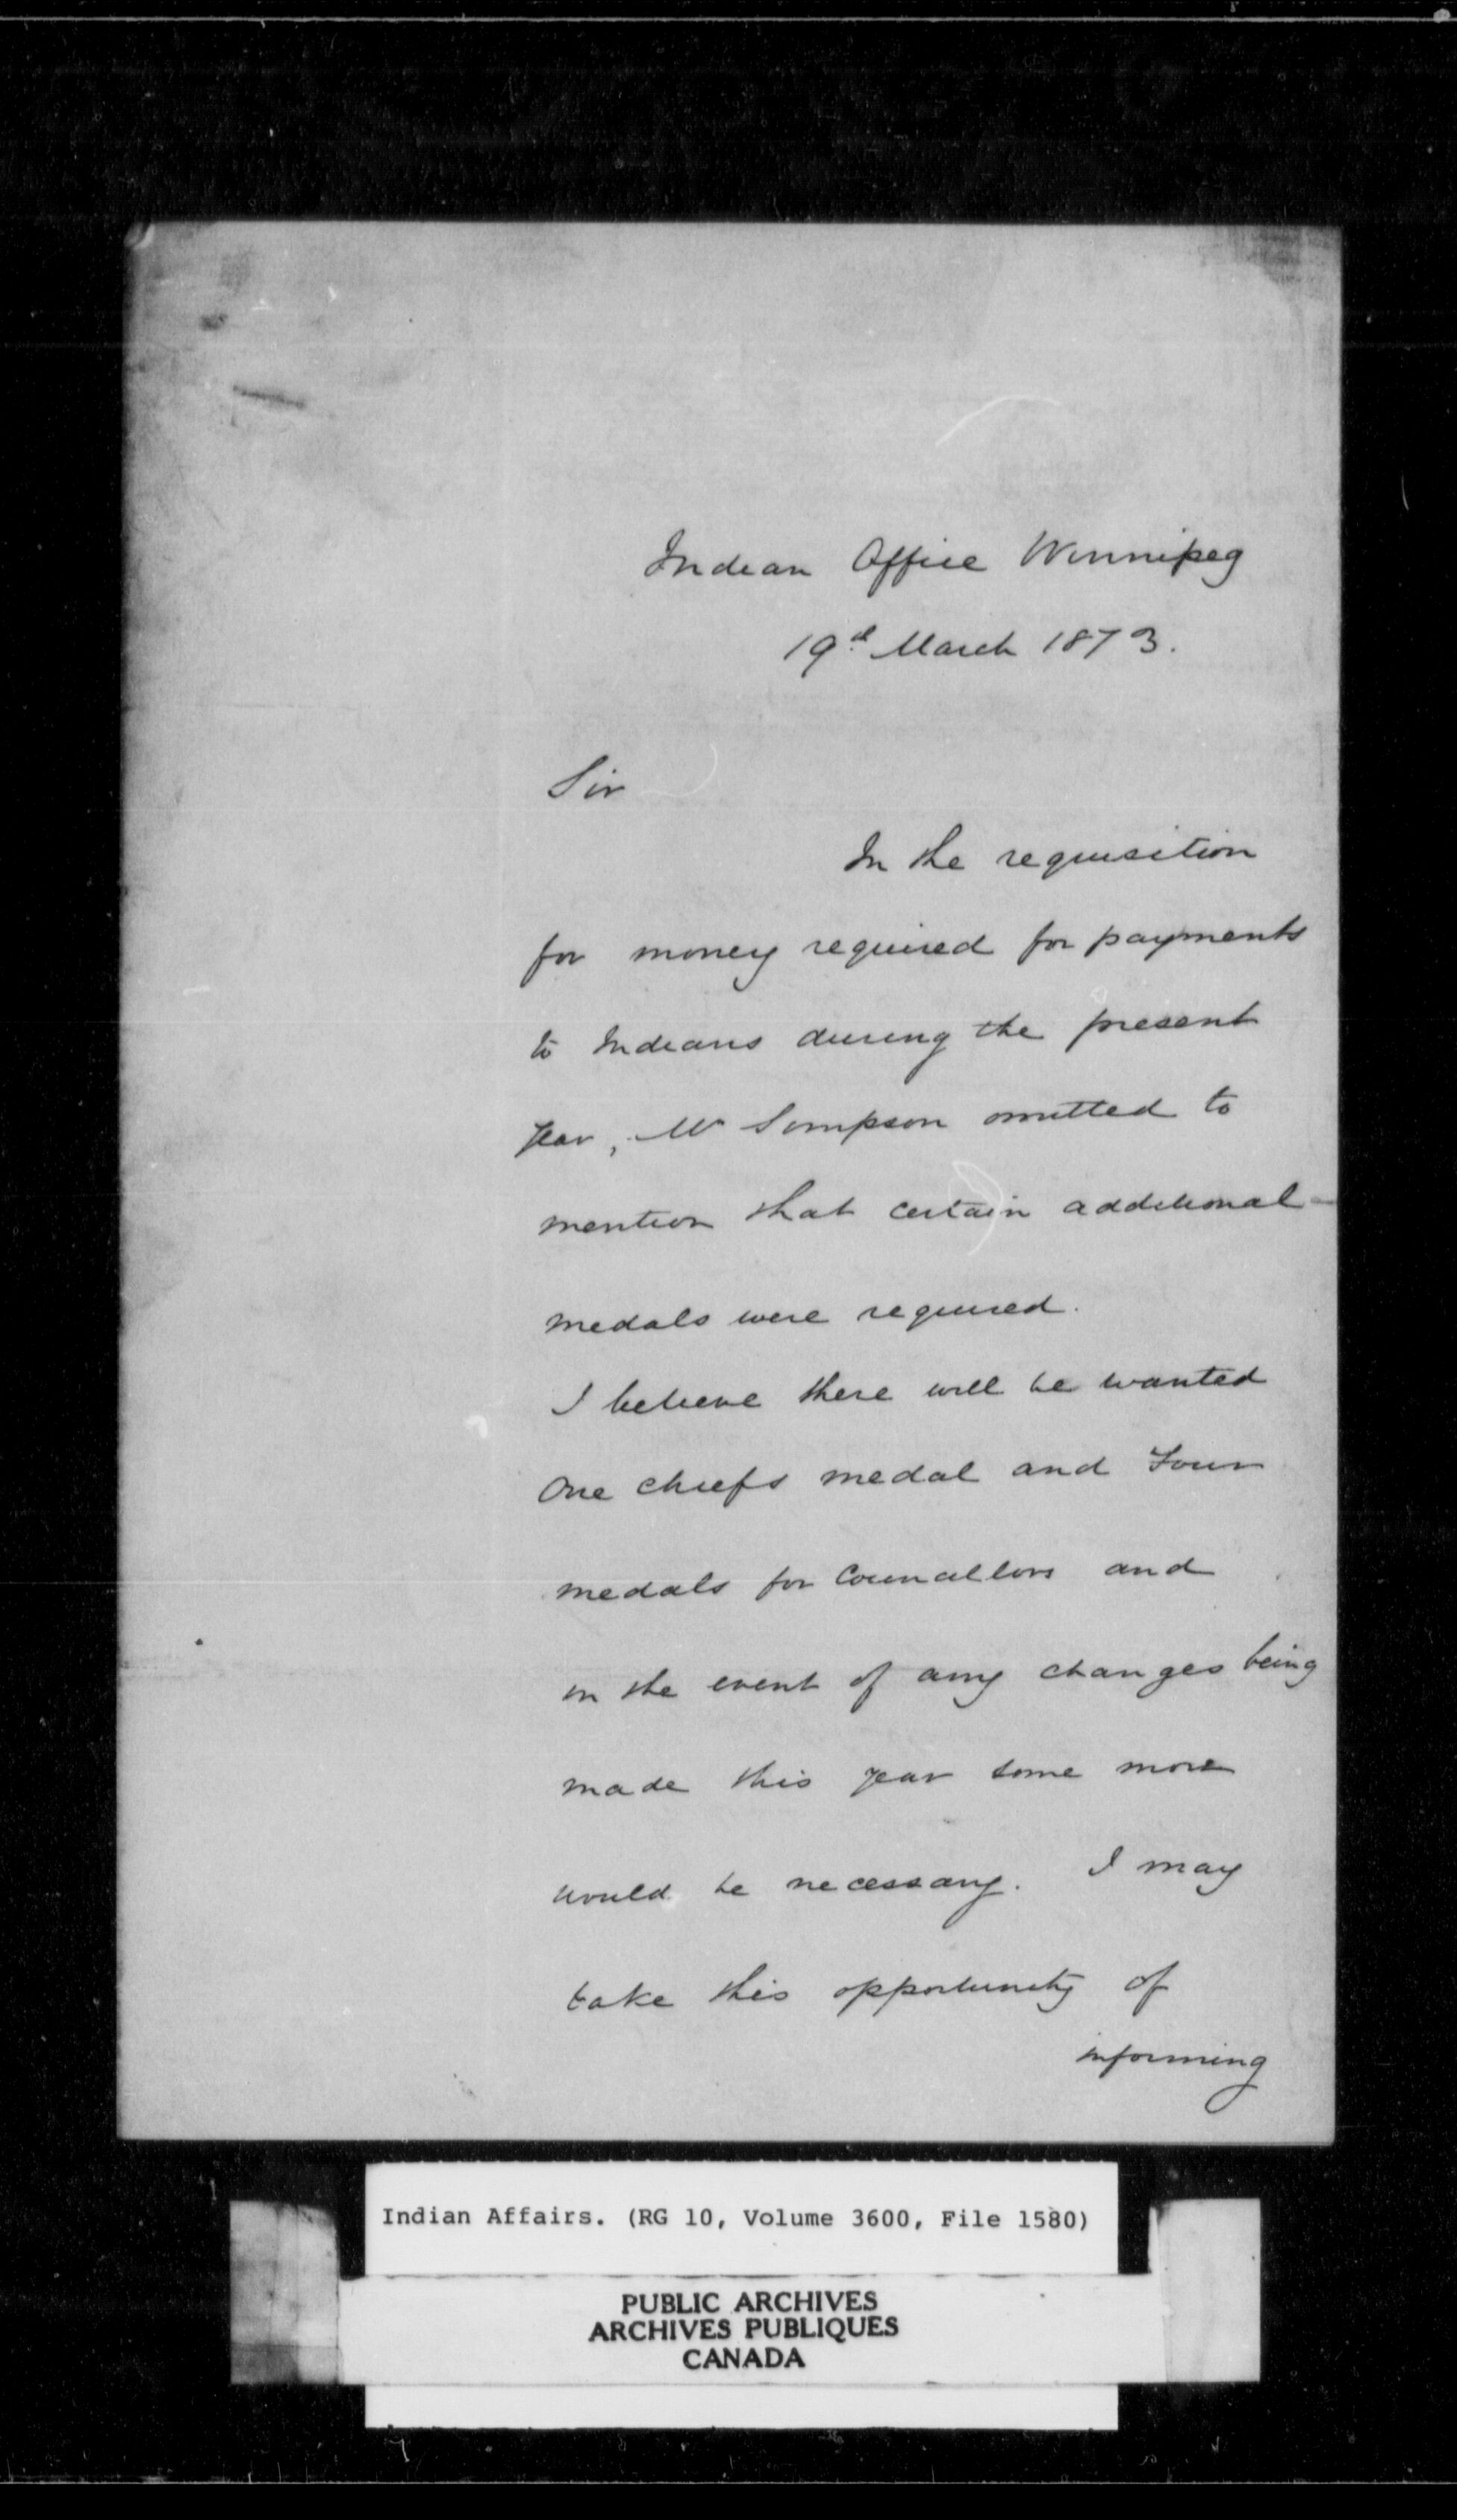 Indian Office Winnipeg
19th March 1873.
Sir
In the requisition
for money required for payments
to Indians during the present
year, Mr Simpson omitted to
mention that certain additional
medals were required.
I believe there will be wanted
One chiefs medal and Four
medals for Councillors and
in the event of any changes being
made this year some more
would be necessary. I may
take this opportunity of
informing
Indian Affairs. (RG 10, Volume 3600, File 1580)
PUBLIC ARCHIVES
ARCHIVES PUBLIQUES
CANADA